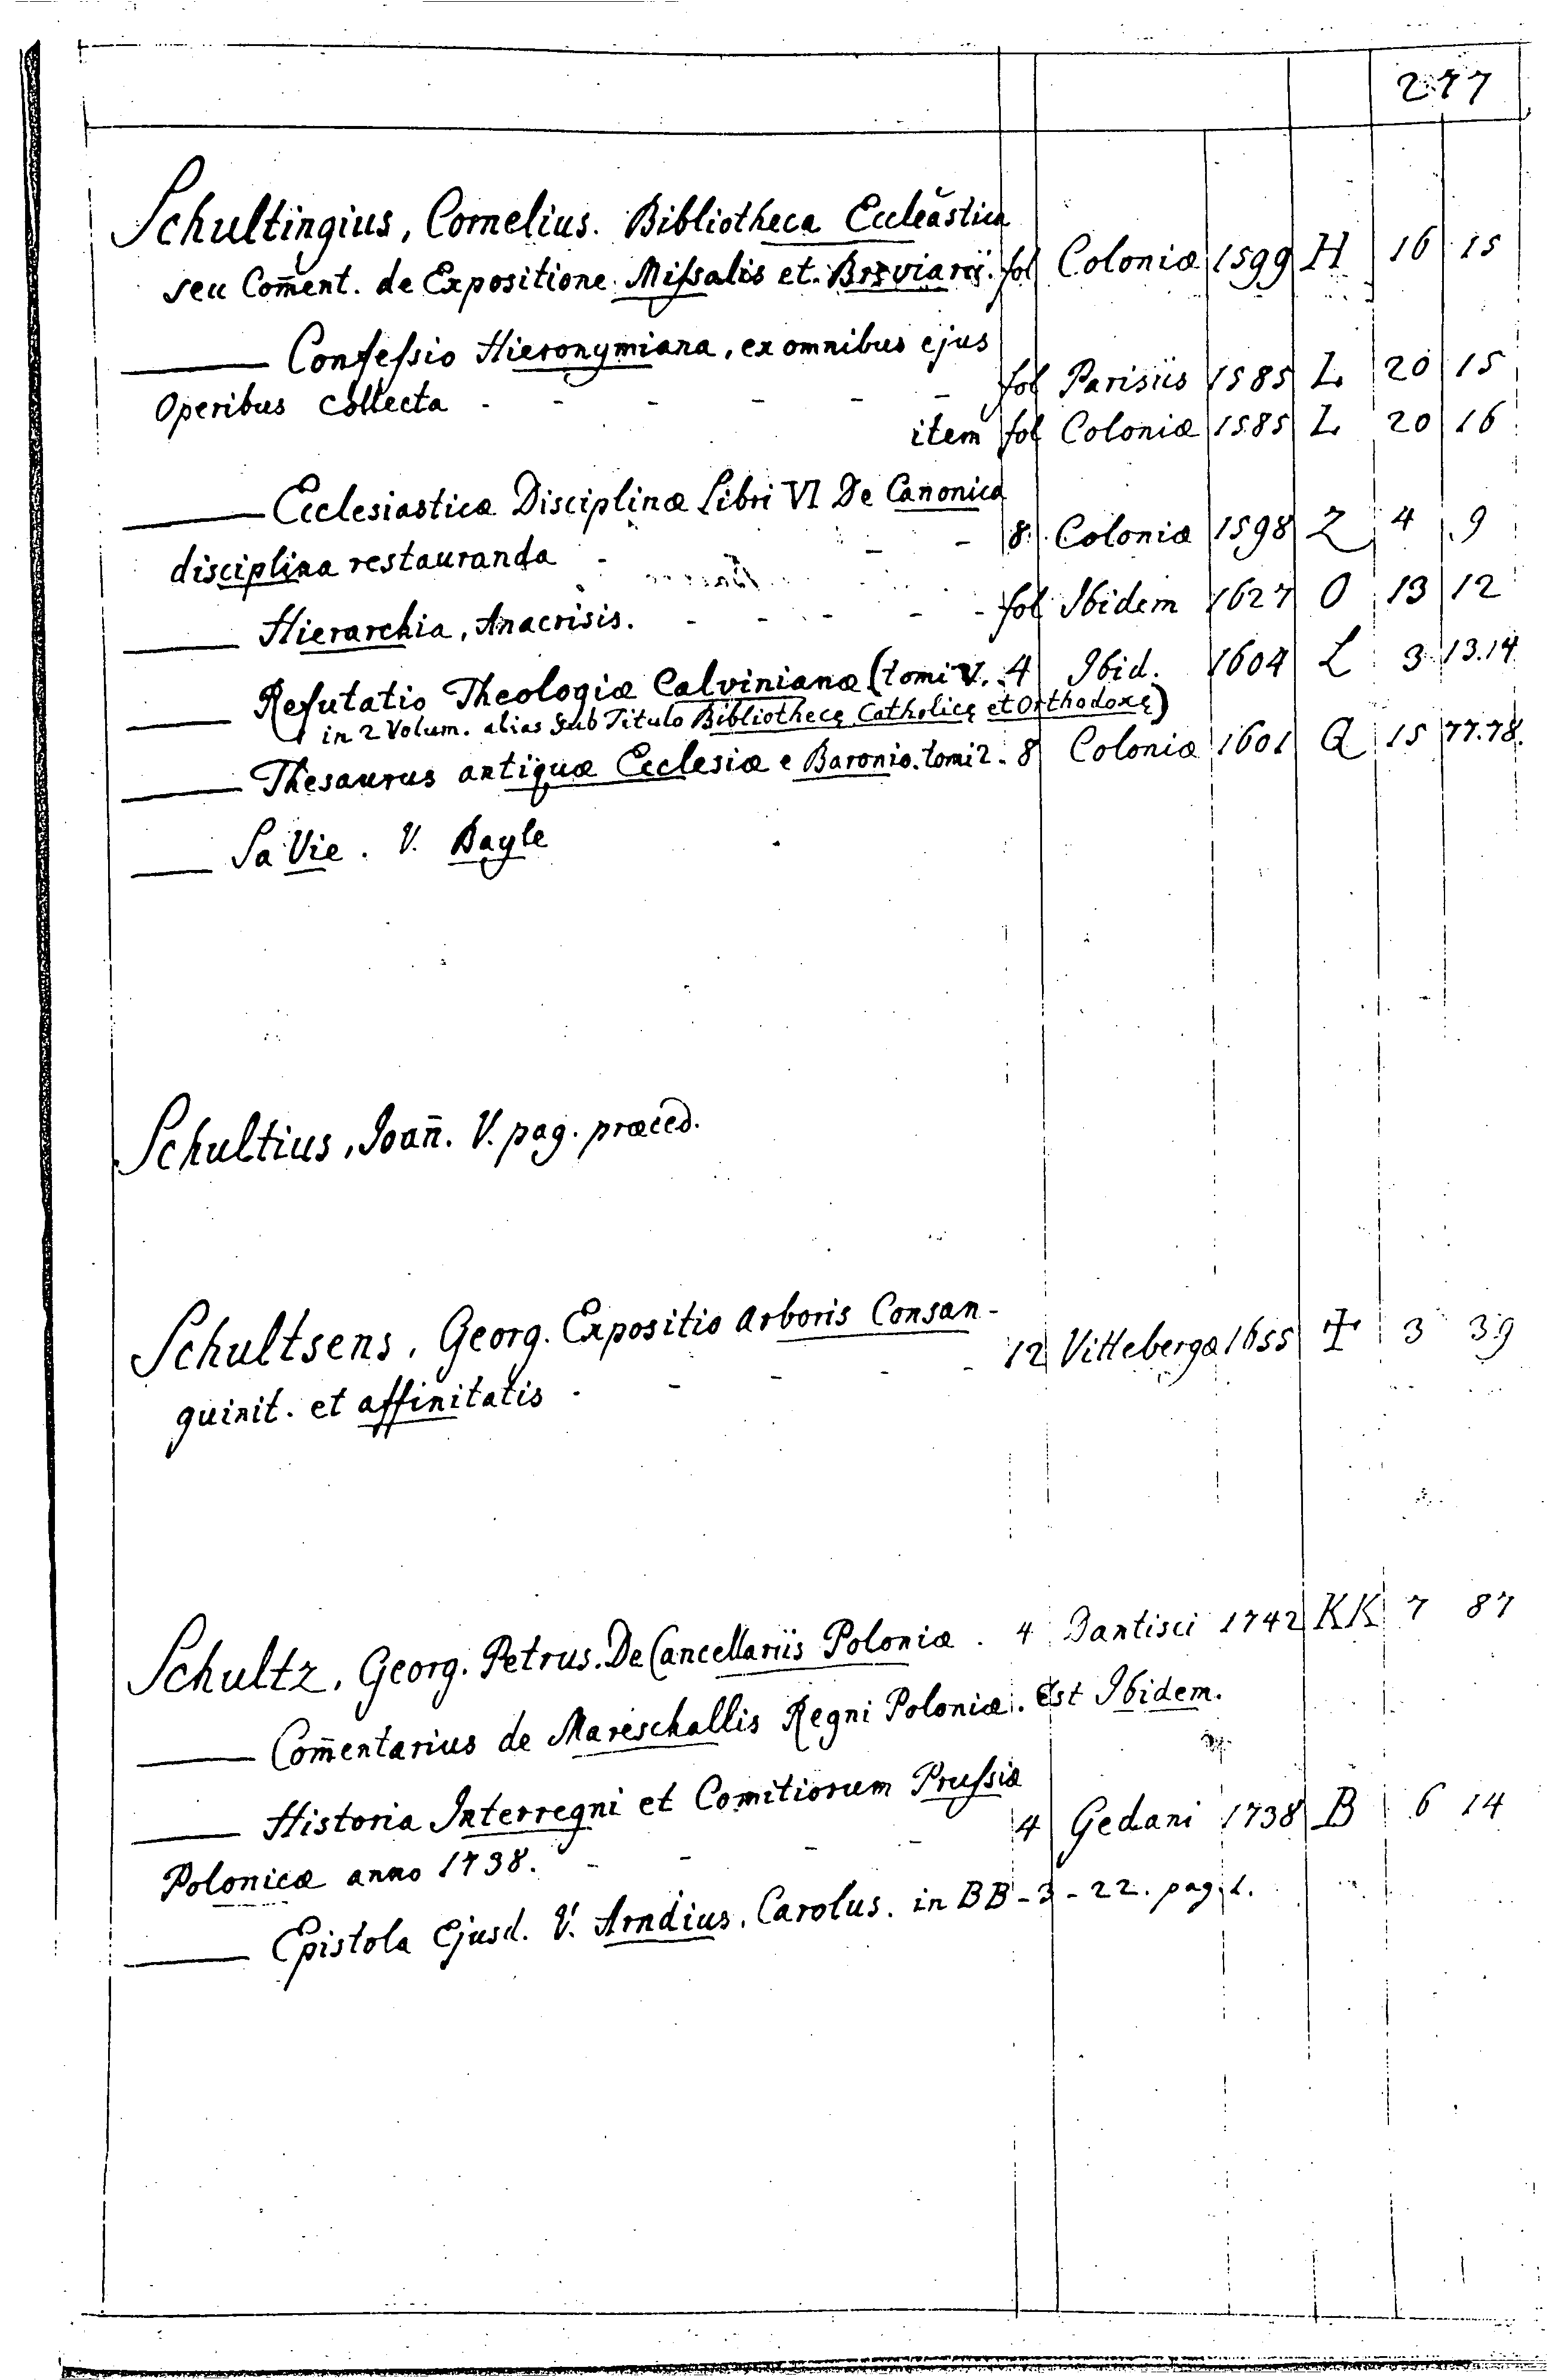 277
Schultingius, Cornelius. Bibliotheca Eccleãstica
seu Com̄ent. de Expositione Miſsalis et Breviarij. fol Coloniæ 1599 H 16 15
——— Confeſsio Hieronymiana, ex omnibus ejus
Operibus collecta - - - - - fol Parisiis 1585 L 20 15
item fol Coloniæ 1585 L 20 16
——— Ecclesiasticæ Disciplinæ Libri VI De Canonica
disciplina restauranda - - - 8. Coloniæ 1598 Z 4 9
——— Hierarchia, Anacrisis. - - - - fol Ibidem 1627 O 13 12
——— Refutatio Theologiæ Calvinianæ (tomi V. 4 Ibid. 1604 L 3 13.14
in 2 Volum. alias Sub Titulo Bibliothecę Catholicę et Orthodoxę)
——— Thesaurus antiquæ Ecclesiæ e Baronio. tomi 2. 8 Coloniæ 1601 Q 15 77.78.
——— Sa Vie. V. Bayle
Schultius, Joan̄. V. pag. præced.
Schultsens, Georg. Expositio Arboris Consan-
guinit. et affinitatis - - - - 12 Vittebergæ 1655 ‡ 3 39
Schultz, Georg. Petrus. De Cancellariis Poloniæ. 4 Dantisci 1742 KK 7 87
——— Com̄entarius de Mareschallis Regni Poloniæ. Est Ibidem.
——— Historia Interregni et Comitiorum Pruſsiæ
Polonicæ anno 1738. - - - - 4 Gedani 1738 B 6 14
——— Epistola Ejusd. V. Arndius, Carolus. in BB-3-22. pag. 1.